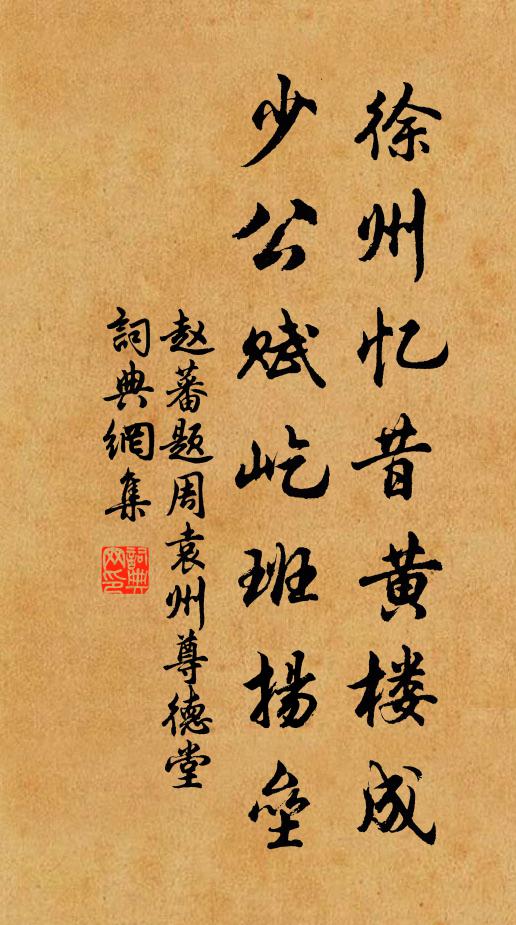 徐州忆昔黄楼成
少公赋屹班扬垒
赵蕃题周袁州尊德堂
詞典網集
詞典網印